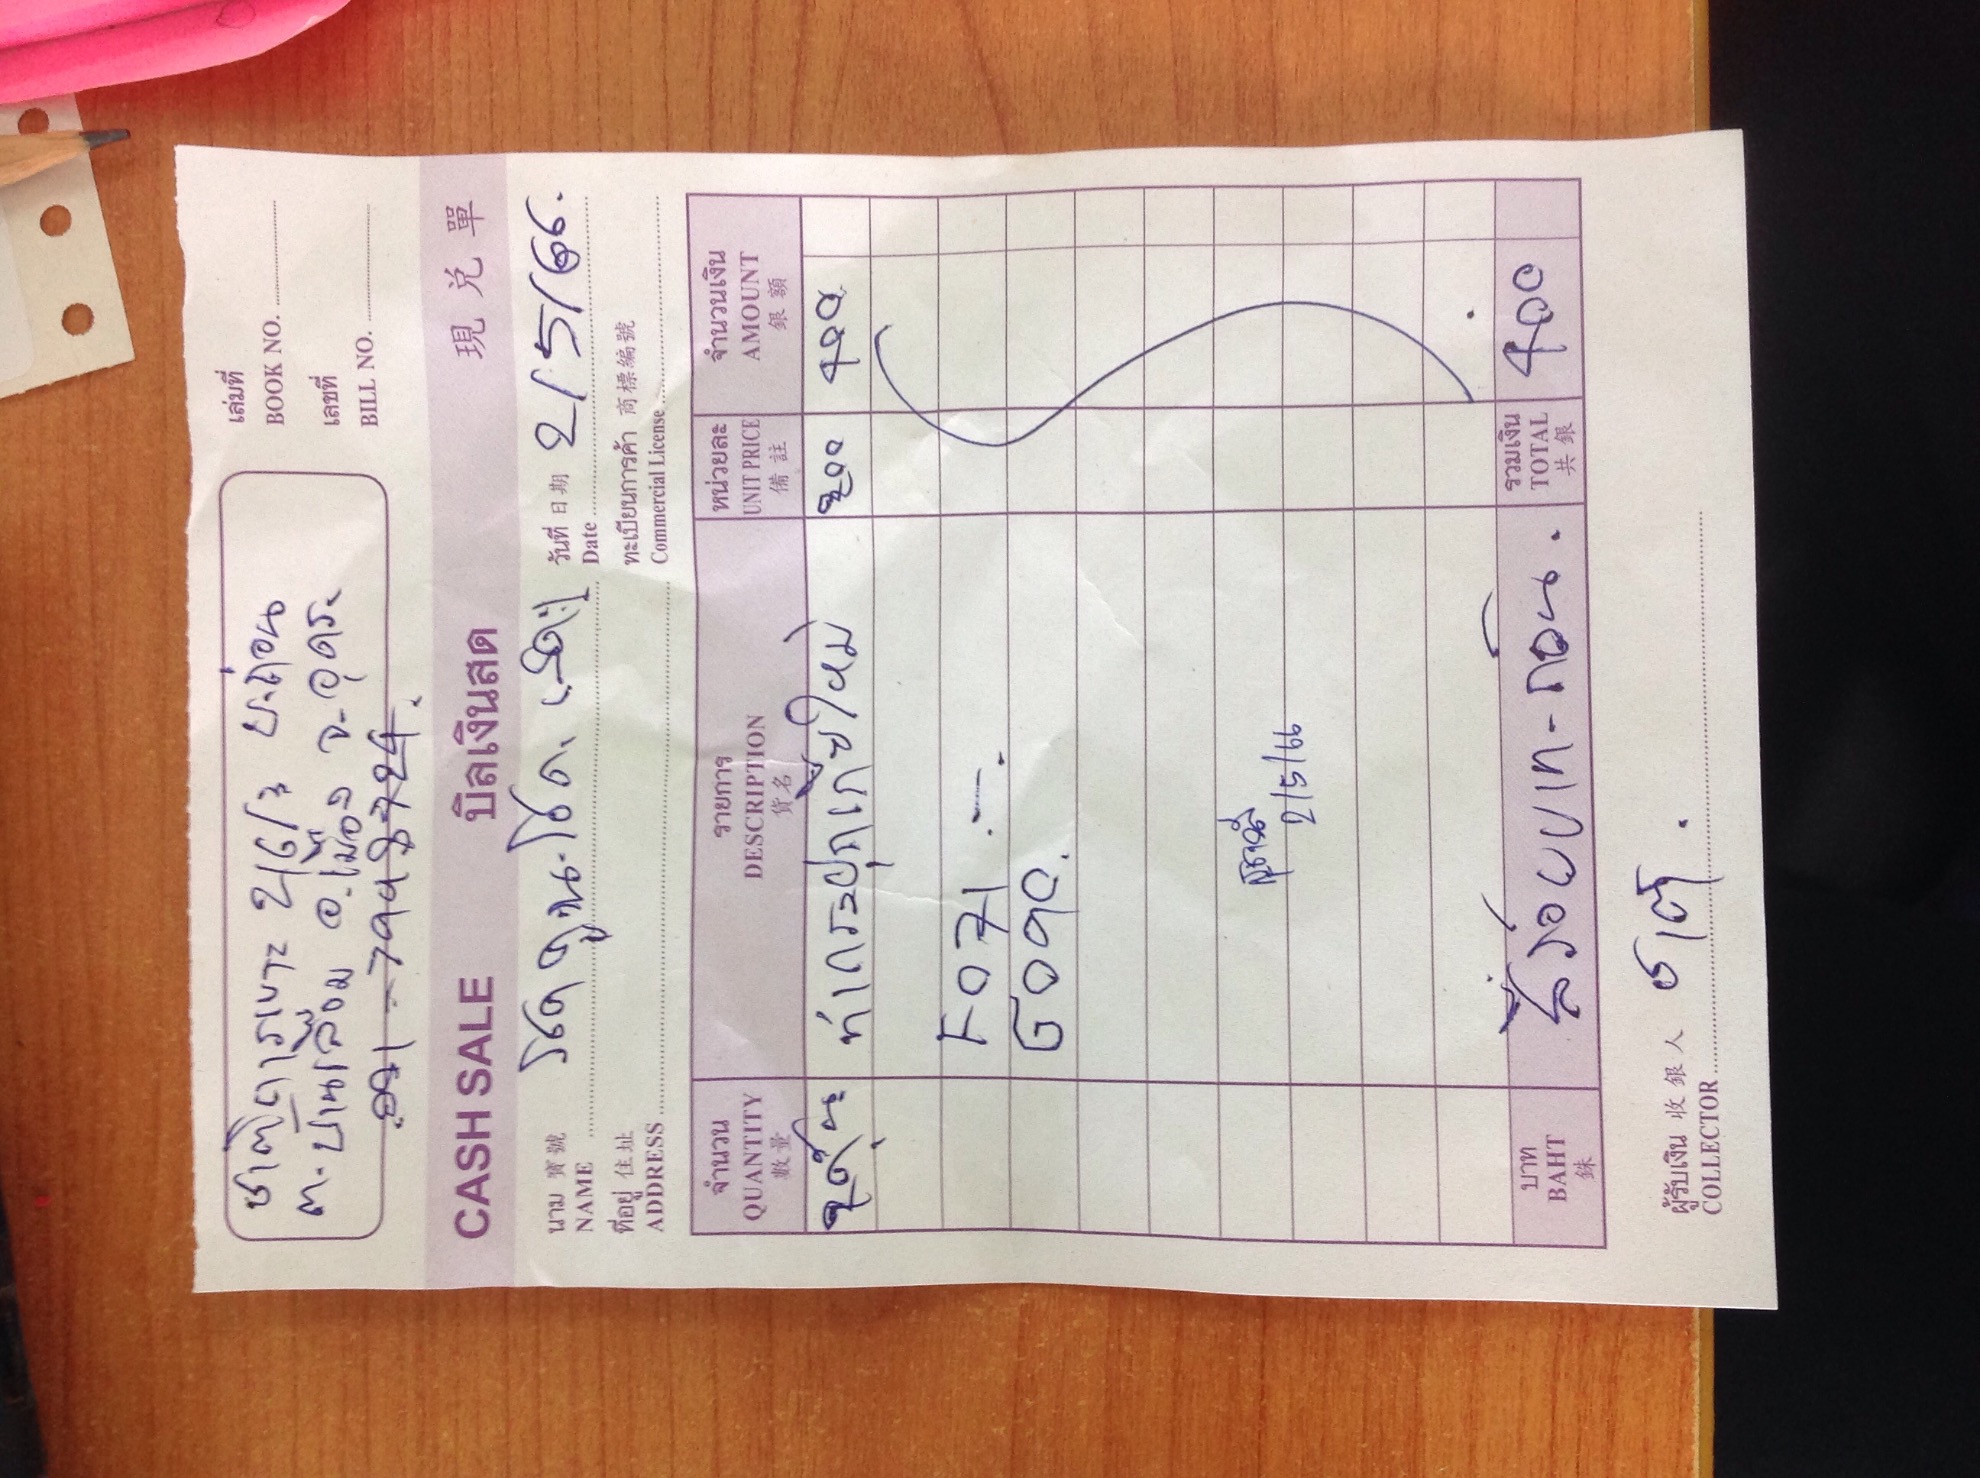 เล่มที่
BOOK NO.
เลขที่
BILL NO.
ชาติการเบาะ 216/3 ม.
ต. อ.เมือง จ.อุดร
CASH SALE บิลเงินสด 現兑單
นาม 寶號
NAME
วันที่ 日期 2/5/66.
Date
ที่อยู่ 住址
ADDRESS
ทะเบียนการค้า 商標編號
Commercial License
จำนวน รายการ หน่วยละ จำนวนเงิน
QUANTITY DESCRIPTION UNIT PRICE AMOUNT
數量 貨名 備註 銀額
2 คัน ทำกระปุกเกียร์ใหม่ 200 400
F071
G090.
2/5/66
บาท สี่ร้อยบาท-ถ้วน. รวมเงิน 400
BAHT TOTAL
銖 共銀
ผู้รับเงิน 收銀人 ชาติ.
COLLECTOR